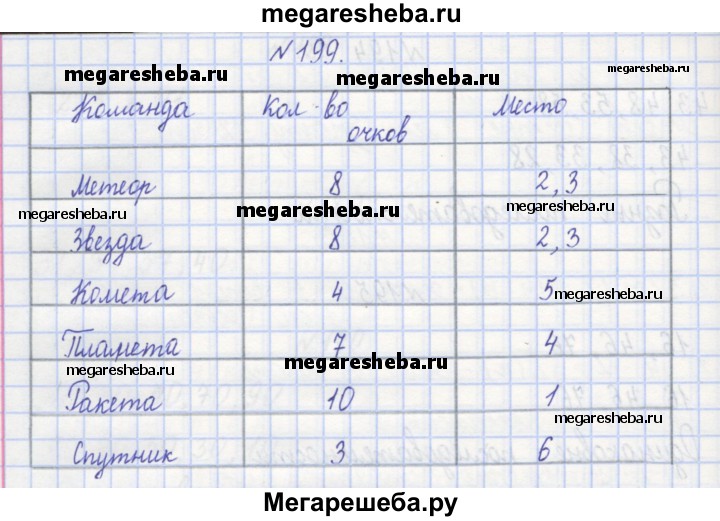 megaresheba.ru
№199.
megaresheba.ru megaresheba.ru megaresheba.ru
Команда Кол-во очков Место
Метеор 8 2,3
megaresheba.ru megaresheba.ru megaresheba.ru
Звезда 8 2,3
Комета 4 5 megaresheba.ru
Планета 7 4
megaresheba.ru megaresheba.ru
Ракета 10 1
megaresheba.ru
Спутник 3 6
Мегарешеба.ру